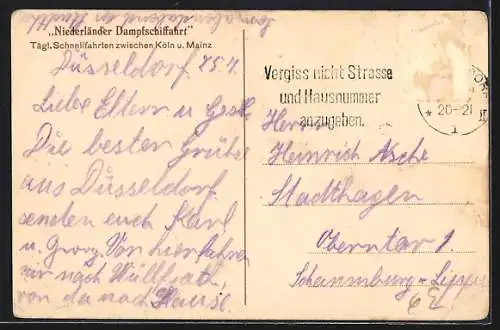 „Niederländer Dampfschiffahrt“
Tägl. Schnellfahrten zwischen Köln u. Mainz
Düsseldorf 25.
Liebe Eltern u.
Die besten Grüße
aus Düsseldorf
senden euch Karl
u. Georg. Von hier fahren
wir nach
von da nach Hause.
Vergiss nicht Strasse
und Hausnummer
anzugeben.
* 20-21
1
Herrn
Heinrich Asche
Stadthagen
Oberntor 1.
Schaumburg-Lippe